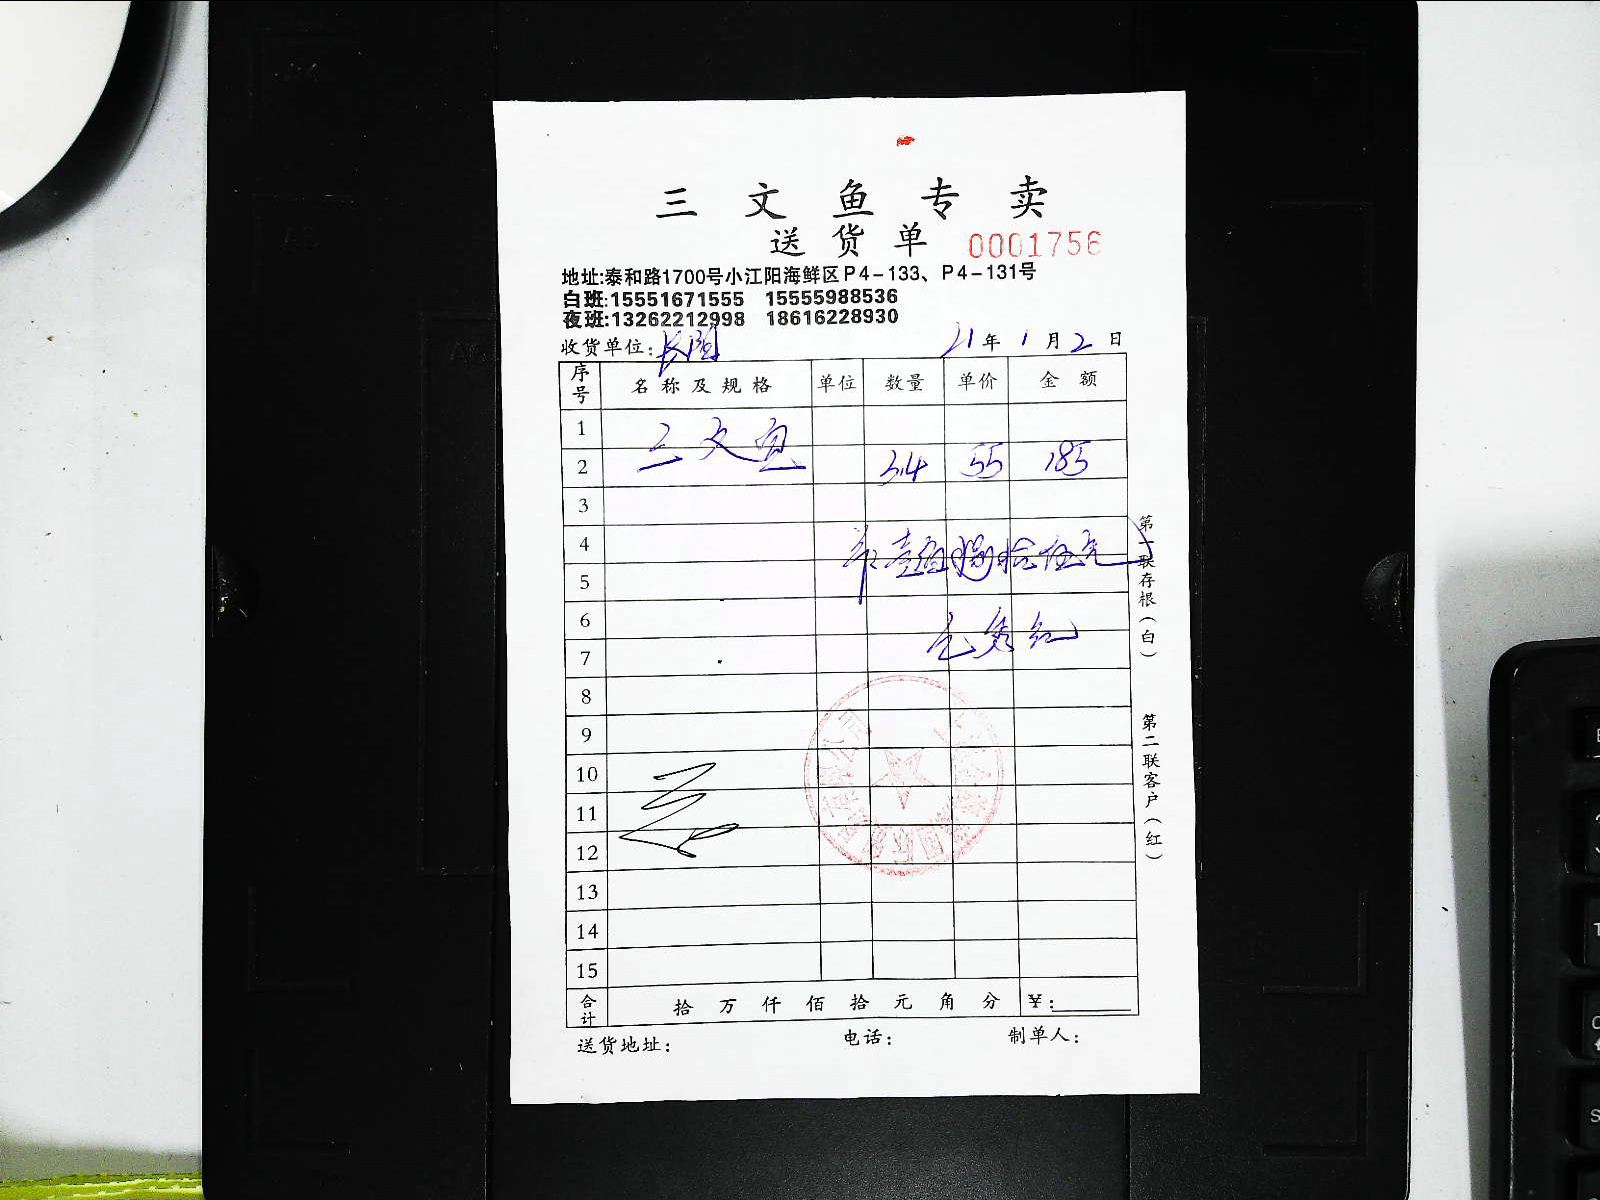 三文鱼专卖
送货单 0001756
地址:泰和路1700号小江阳海鲜区P4-133、P4-131号
白班:15551671555 15555988536
夜班:13262212998 18616228930
收货单位: 长阳 21年1月2日
序号 名称及规格 单位 数量 单价 金额
1
三文鱼
2 3.4 55 185
3
4
壹佰捌拾伍元
5
6
7
8
9
10
11
12
13
14
15
合计 拾 万 仟 佰 拾 元 角 分 ¥:
送货地址: 电话: 制单人:
第一联存根(白)
第二联客户(红)